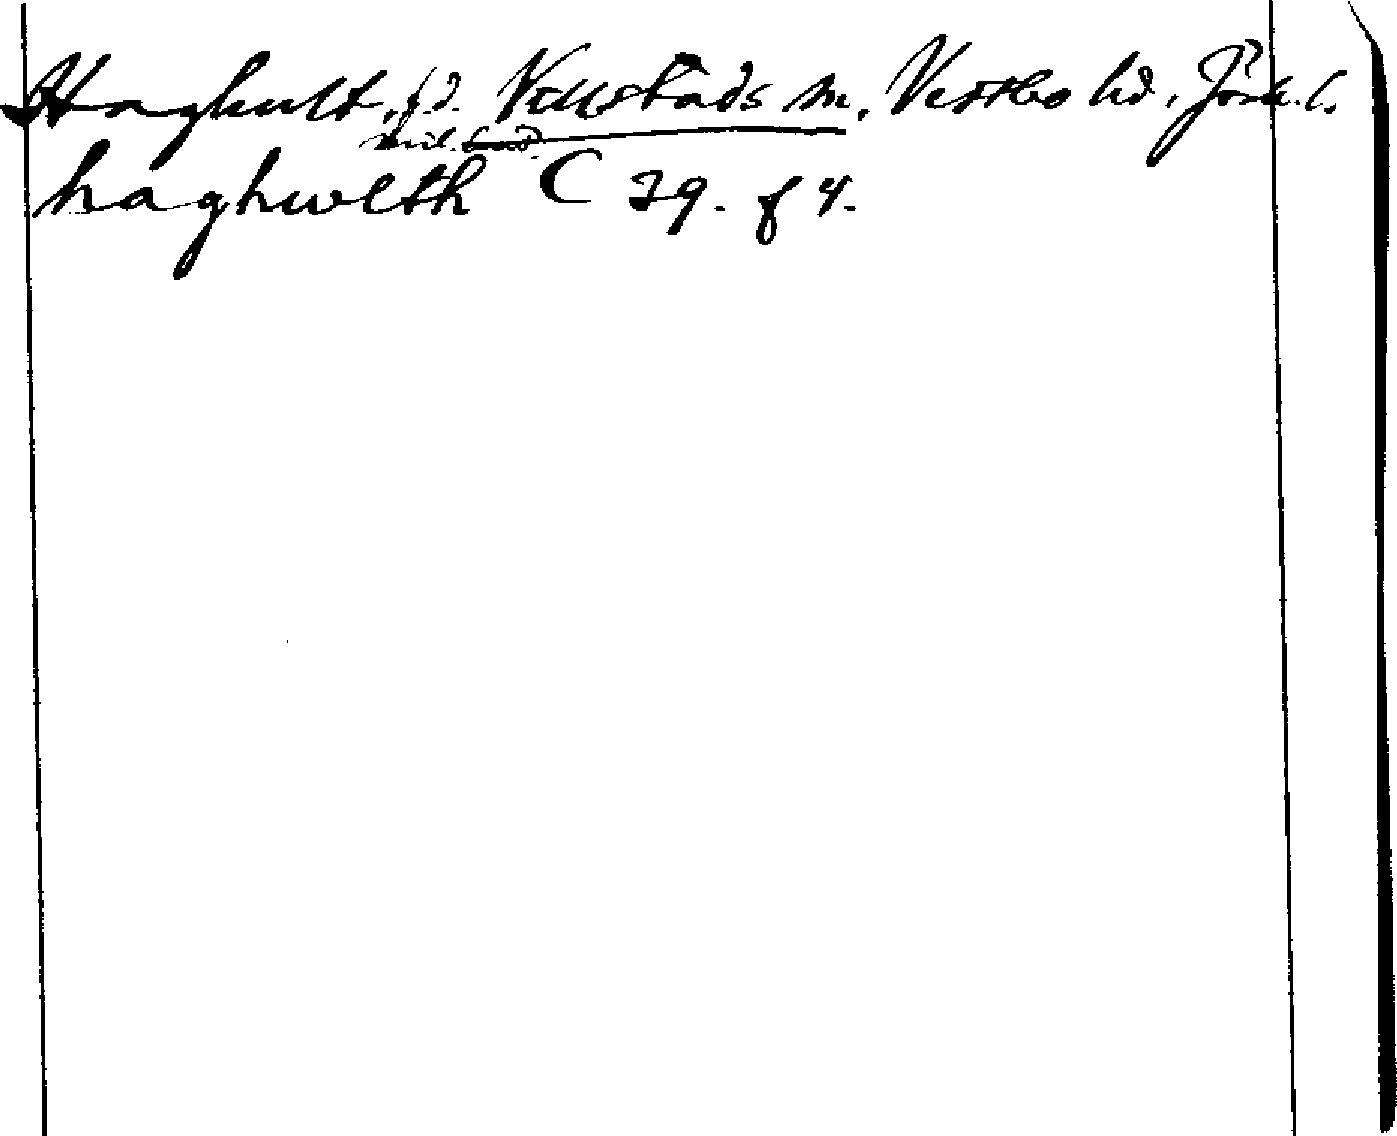 Haghult, fd. Villstads sn, Vestbo hd. Jönk. l.
mil. bost.
haghwlth C 39. f 4.